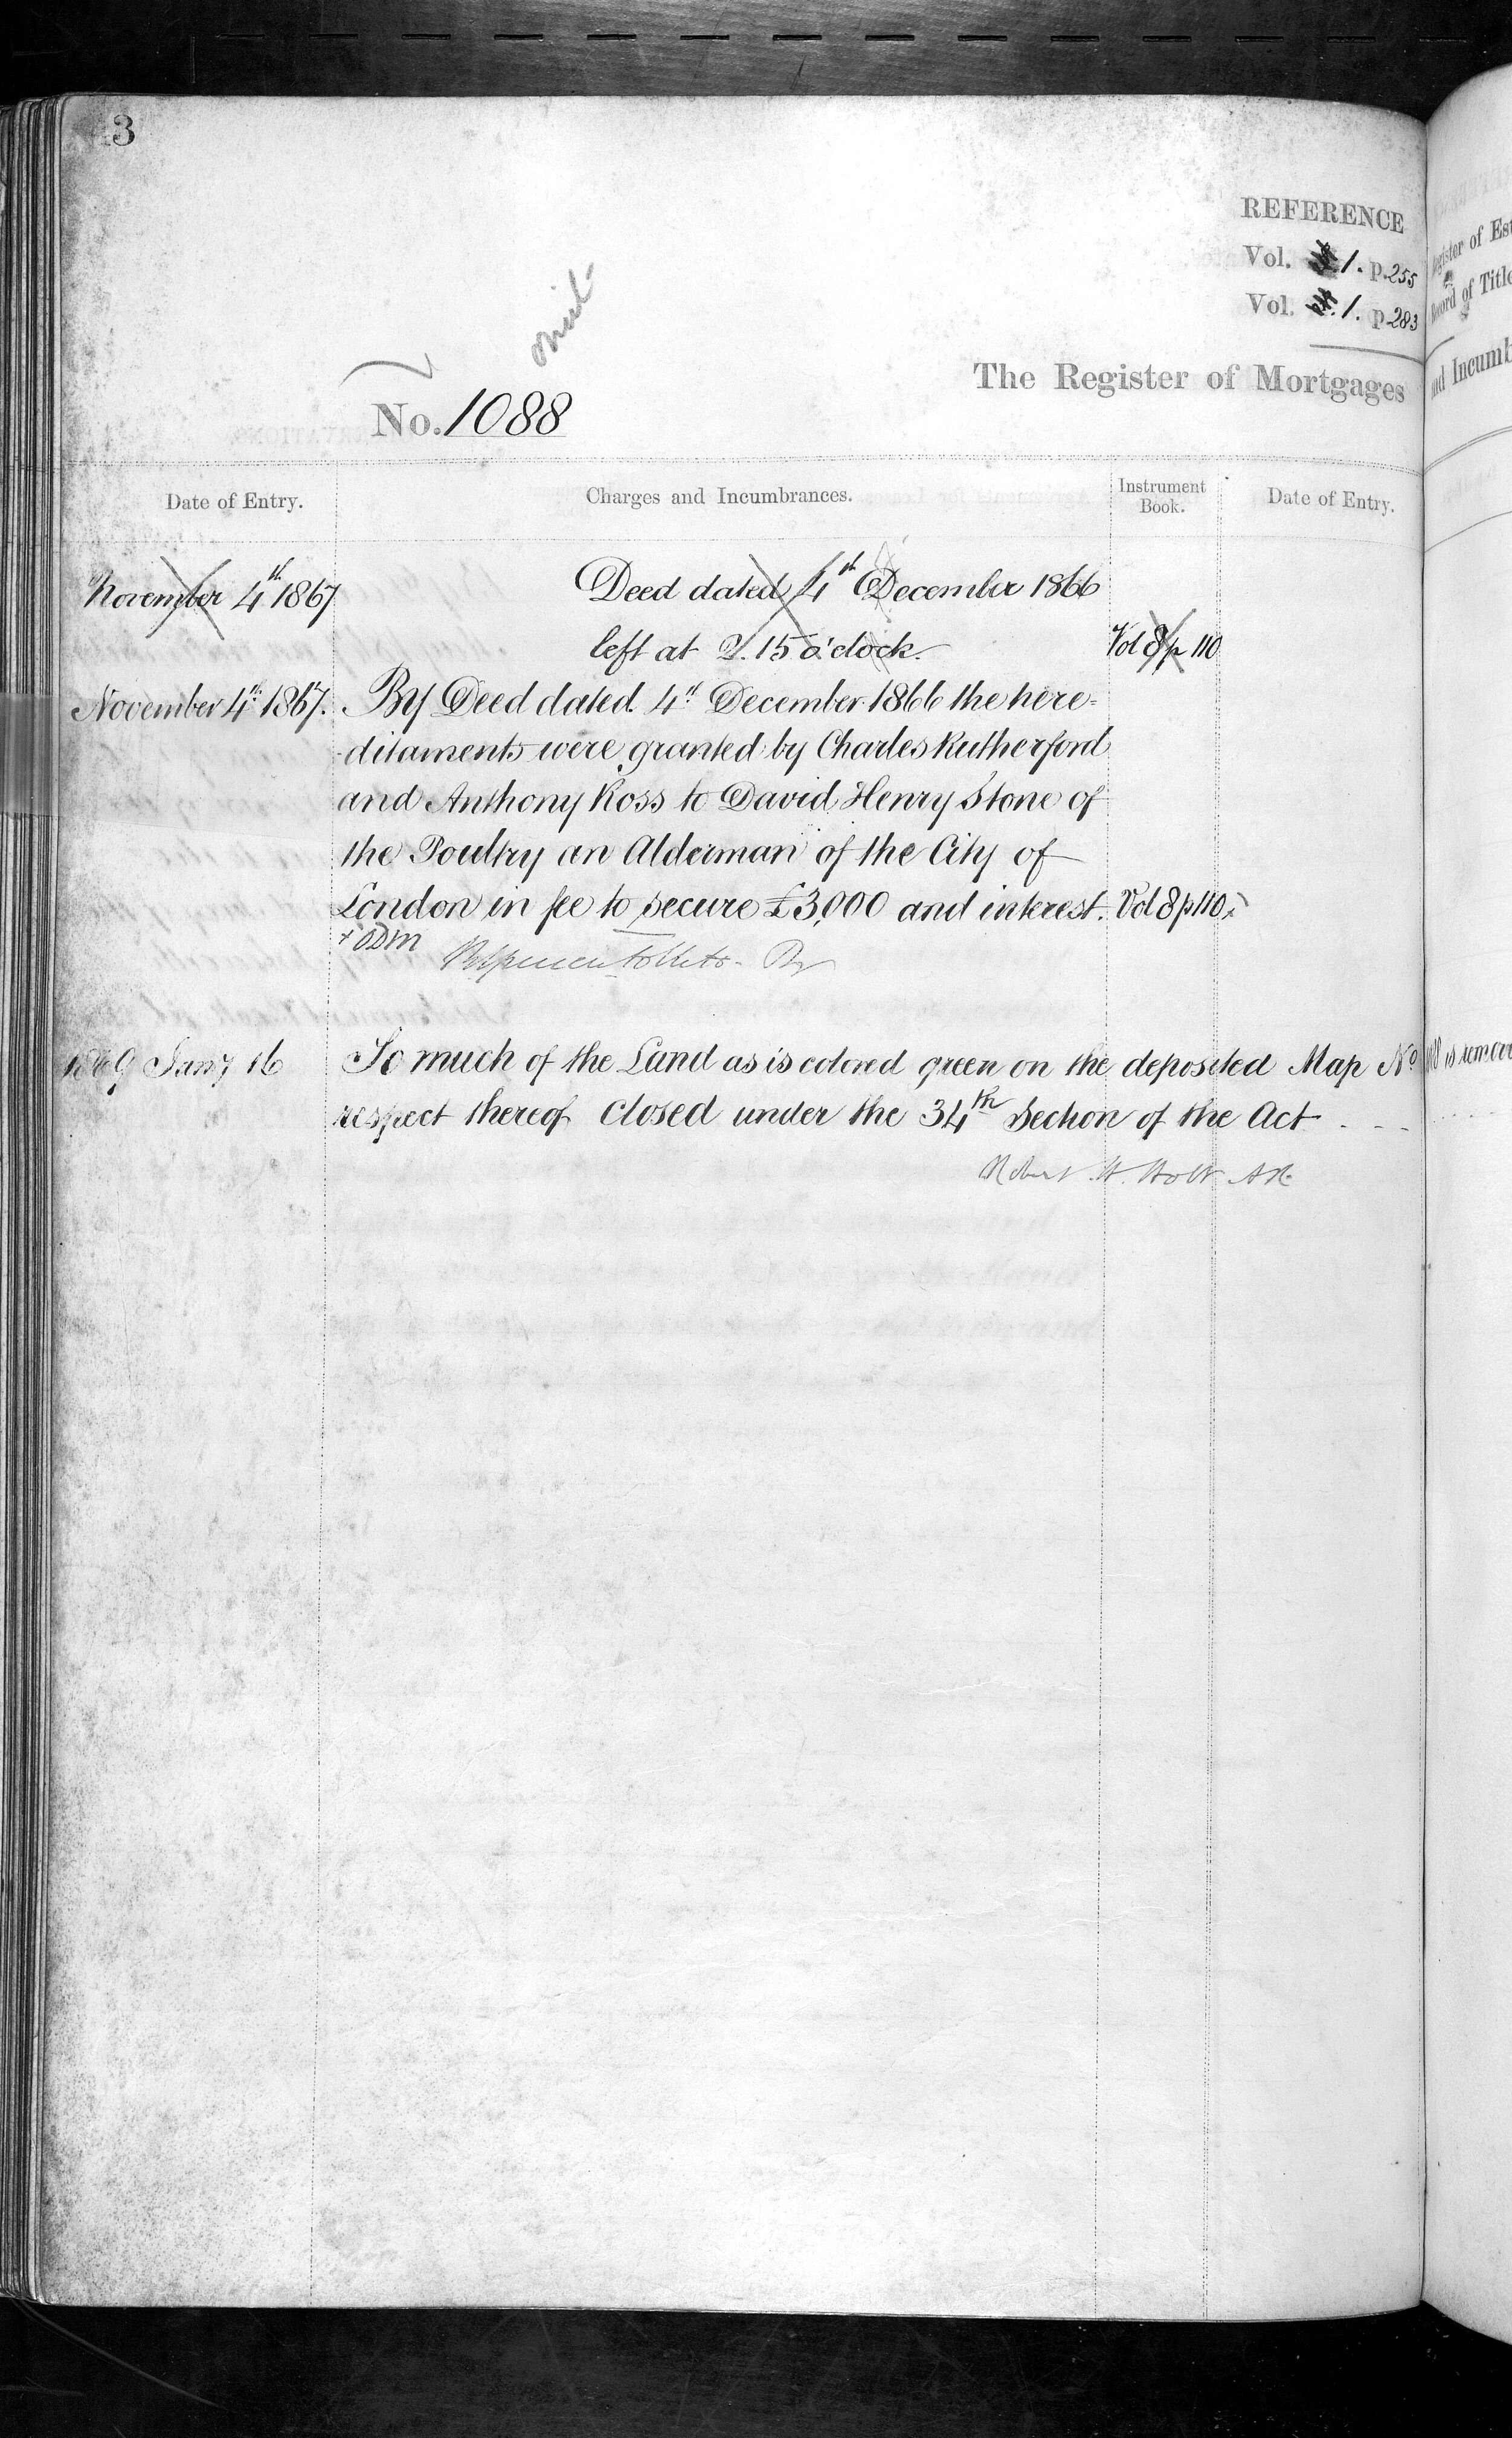 3
REFERENCE
Vol. 1. p. 255
Vol. 1. p. 283
omit
No. 1088
The Register of Mortgages
Date of Entry.
Charges and Incumbrances.
Instrument
Book.
Date of Entry.
November 4th 1867
Deed dated 4th December 1866
left at 2.15 o'clock.
Vol 8 p 110
November 4th 1867.
By Deed dated 4th December 1866 the here-
ditaments were granted by Charles Rutherford
and Anthony Ross to David Henry Stone of
the Poultry an Alderman of the City of
London in fee to secure £3,000 and interest.
Vol 8 p 110
1869 Jany 16
So much of the Land as is colored green on the deposited Map No
respect thereof closed under the 34th Section of the Act - - -
Robert H. Holt A R
Register of
Record of Title
and
is